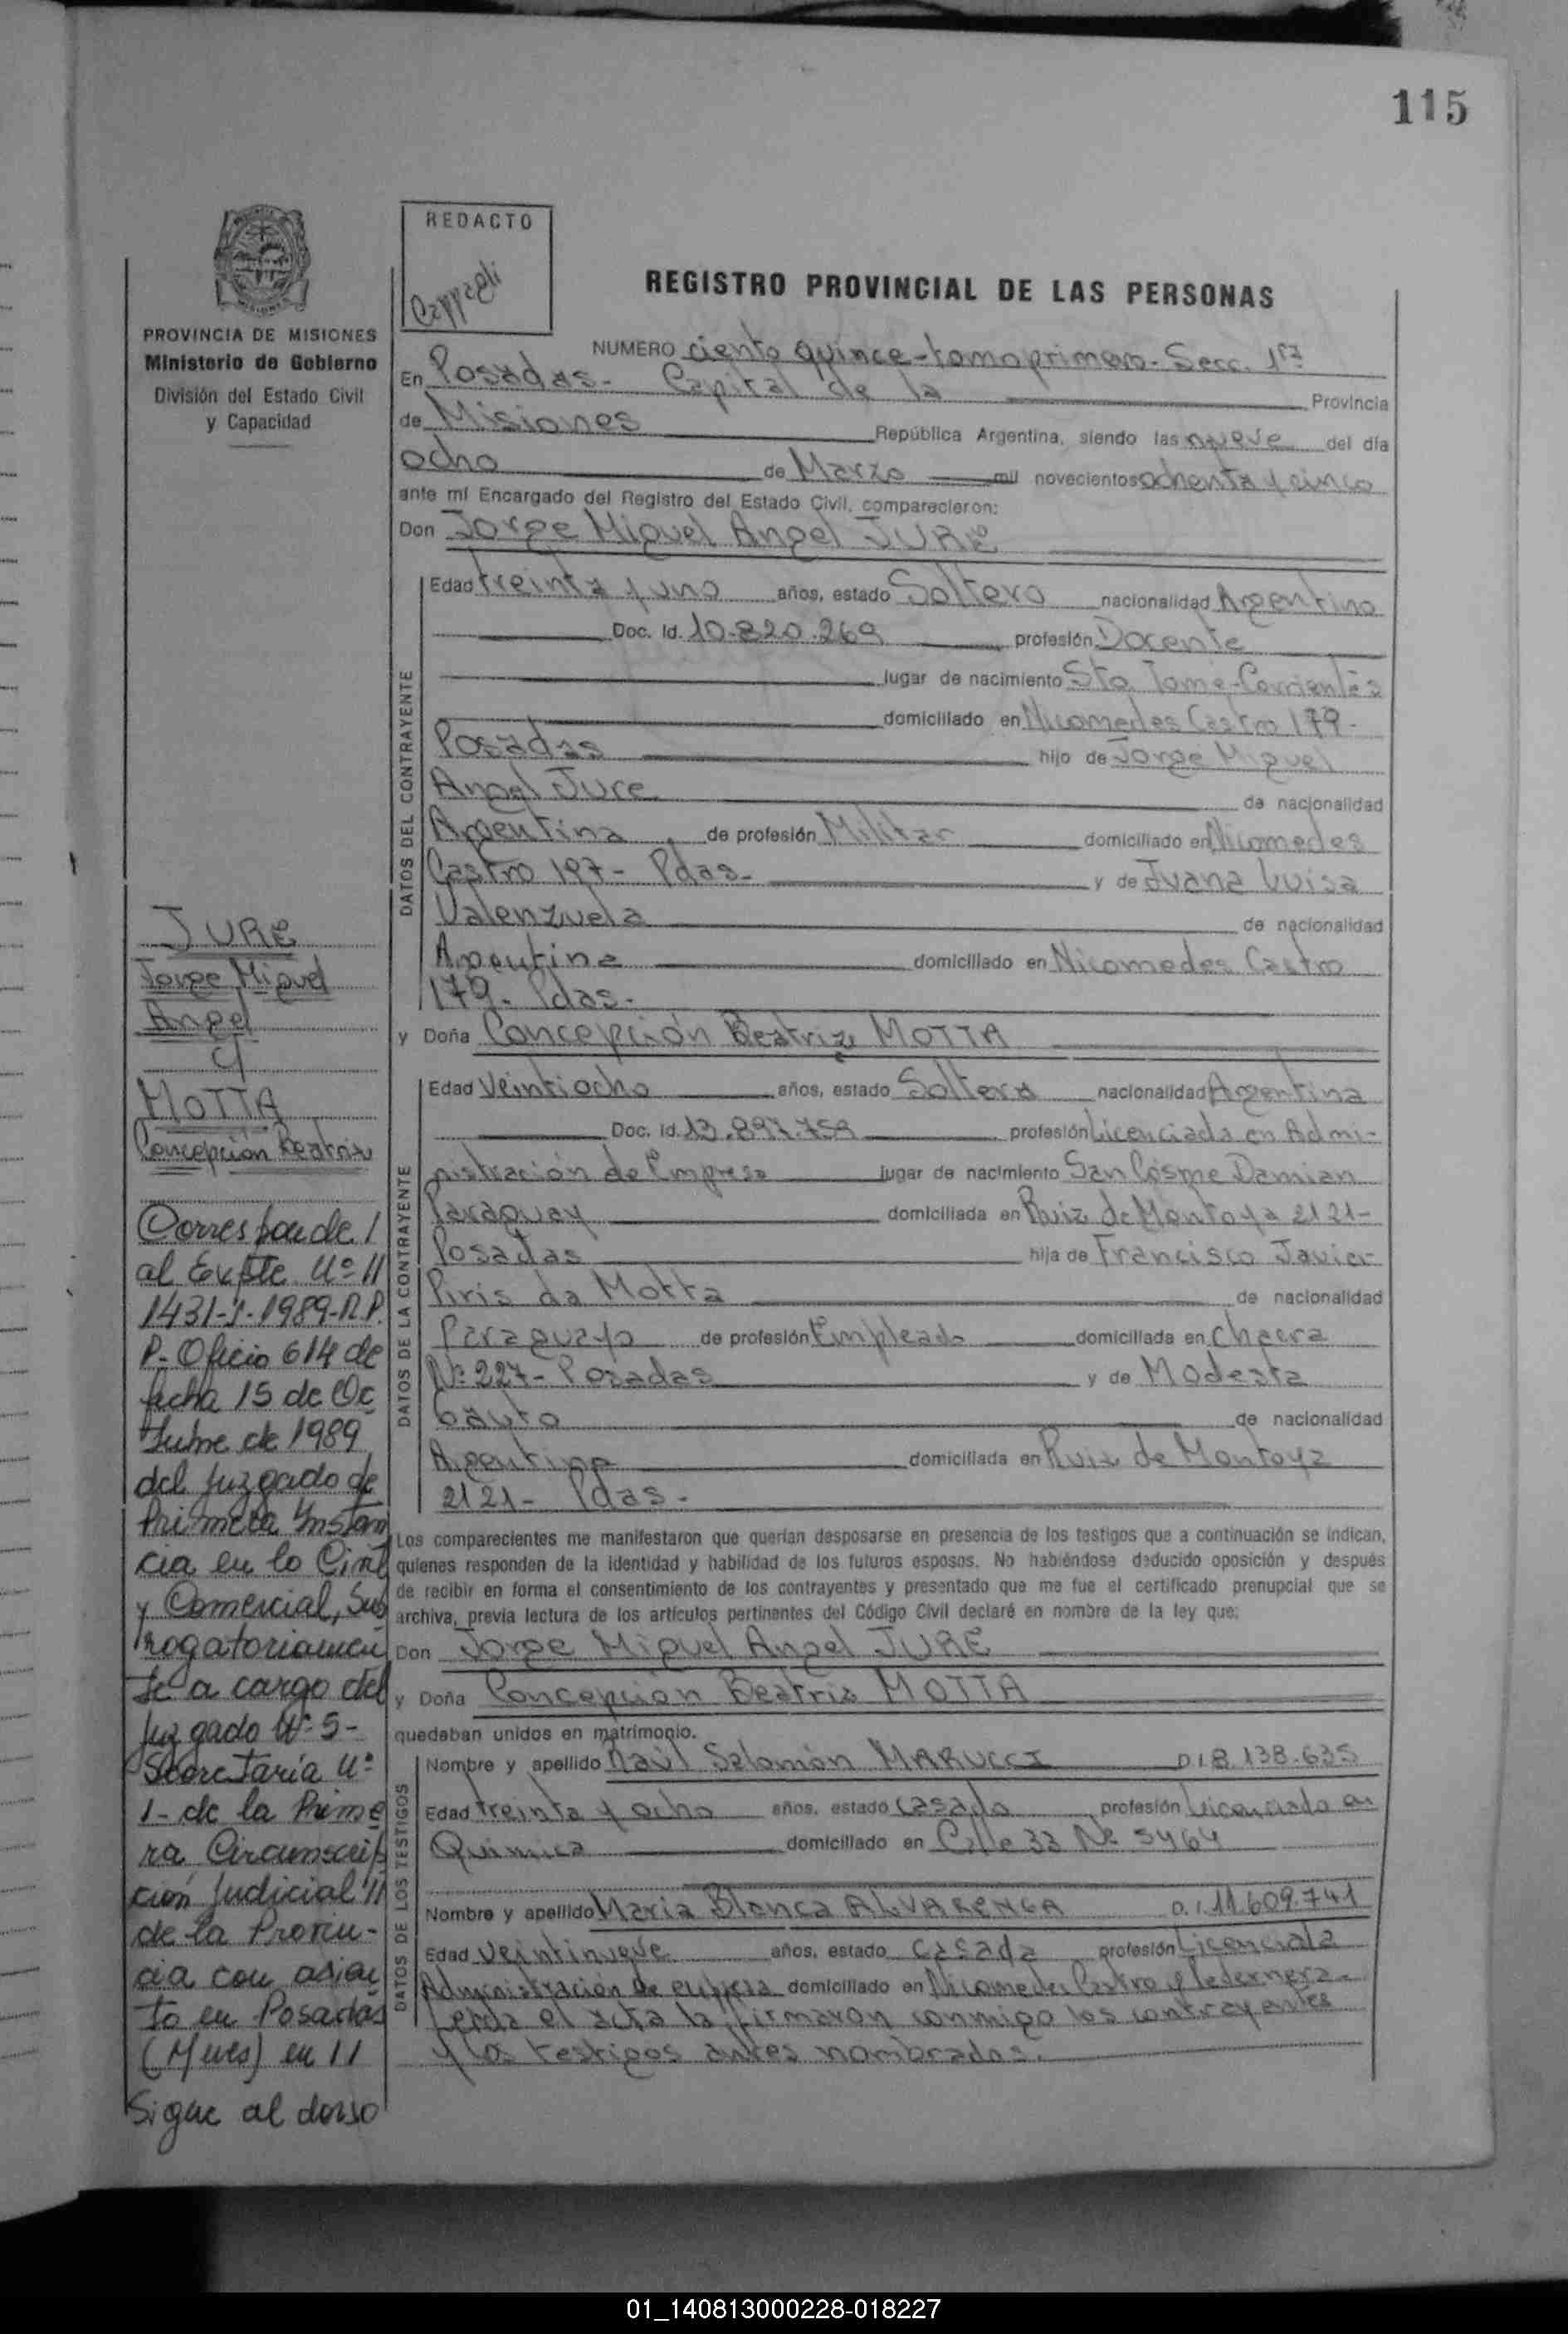 115
REDACTO
REGISTRO PROVINCIAL DE LAS PERSONAS
PROVINCIA DE MISIONES
Ministerio de Gobierno
División del Estado Civil
y Capacidad
NUMERO ciento quince-tomo primero-Secc. 1ra
En Posadas- Capital de la Provincia
de Misiones República Argentina, siendo las nueve del día
ocho de Marzo mil novecientos ochenta y cinco
ante mí Encargado del Registro del Estado Civil, comparecieron:
Don Jorge Miguel Angel JURE
DATOS DEL CONTRAYENTE
Edad treinta y uno años, estado Soltero nacionalidad Argentino
Doc. Id. 10.820.269 profesión Docente
lugar de nacimiento Sto. Tomé-Corrientes
domiciliado en Nicomedes Castro 179-
Posadas hijo de Jorge Miguel
Angel Jure de nacionalidad
Argentina de profesión Militar domiciliado en Nicomedes
Castro 197- Pdas- y de Juana Luisa
Valenzuela de nacionalidad
Argentina domiciliado en Nicomedes Castro
179- Pdas-
y Doña Concepción Beatriz MOTTA
DATOS DE LA CONTRAYENTE
Edad Veintiocho años, estado Soltera nacionalidad Argentina
Doc. Id. 13.897.759 profesión Licenciada en Admi-
nistración de Empresa lugar de nacimiento San Cosme Damian
Paraguay domiciliada en Ruiz de Montoya 2121-
Posadas hija de Francisco Javier
Piris da Motta de nacionalidad
Paraguayo de profesión Empleado domiciliada en Chacra
Nº 227- Posadas y de Modesta
Gauto de nacionalidad
Argentina domiciliada en Ruiz de Montoya
2121- Pdas-
Los comparecientes me manifestaron que querían desposarse en presencia de los testigos que a continuación se indican,
quienes responden de la identidad y habilidad de los futuros esposos. No habiéndose deducido oposición y después
de recibir en forma el consentimiento de los contrayentes y presentado que me fue el certificado prenupcial que se
archiva, previa lectura de los artículos pertinentes del Código Civil declaré en nombre de la ley que:
Don Jorge Miguel Angel JURE
y Doña Concepción Beatriz MOTTA
quedaban unidos en matrimonio.
DATOS DE LOS TESTIGOS
Nombre y apellido Raúl Salomón MARUCCI D.I. 8.138.635
Edad treinta y ocho años, estado casado profesión Licenciado en
Química domiciliado en Calle 33 Nº 5464
Nombre y apellido Maria Blanca ALVARENGA D.I. 11.609.741
Edad veintinueve años, estado casada profesión Licenciada
Administración de empresa domiciliado en Nicomedes Castro y Pedernera-
Leida el acta la firmaron conmigo los contrayentes
y los testigos antes nombrados.
JURE
Jorge Miguel
Angel
c/
MOTTA
Concepción Beatriz
Corresponde /
al Expte. Nº //
1431-J-1989-R.P.
P- Oficio 614 de
fecha 15 de Oc
tubre de 1989
del Juzgado de
Primera Instan
cia en lo Civil
y Comercial, Sub
rogatoriamen
te a cargo del
Juzgado Nº 5-
Secretaría Nº
1- de la Prime
ra Circunscrip
ción Judicial //
de la Provin-
cia con asien
to en Posadas
(Mnes) en //
Sigue al dorso
01_140813000228-018227